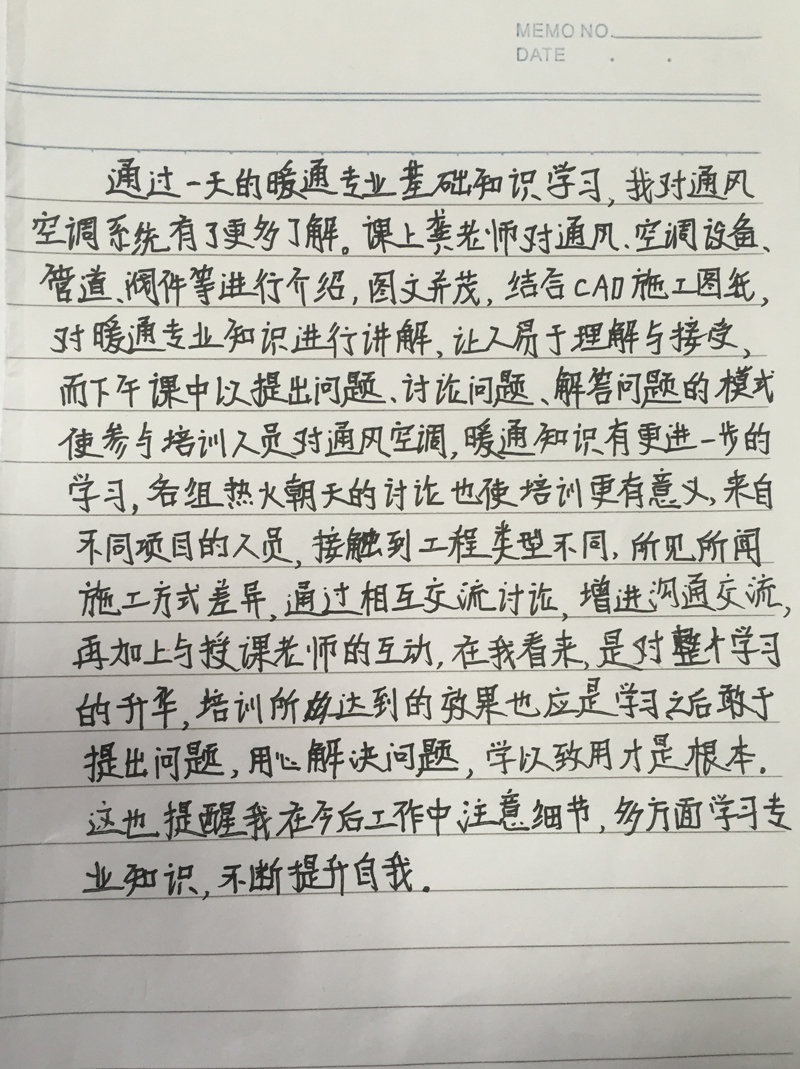 MEMO NO.
DATE . .
通过一天的暖通专业基础知识学习，我对通风
空调系统有了更多了解。课上龚老师对通风、空调设备、
管道、阀件等进行介绍，图文并茂，结合CAD施工图纸，
对暖通专业知识进行讲解，让人易于理解与接受，
而下午课中以提出问题、讨论问题、解答问题的模式
使参与培训人员对通风空调，暖通知识有更进一步的
学习，各组热火朝天的讨论也使培训更有意义，来自
不同项目的人员，接触到工程类型不同，所见所闻
施工方式差异，通过相互交流讨论，增进沟通交流，
再加上与授课老师的互动，在我看来，是对整个学习
的升华，培训所达到的效果也应是学习之后敢于
提出问题，用心解决问题，学以致用才是根本．
这也提醒我在今后工作中注意细节，多方面学习专
业知识，不断提升自我．